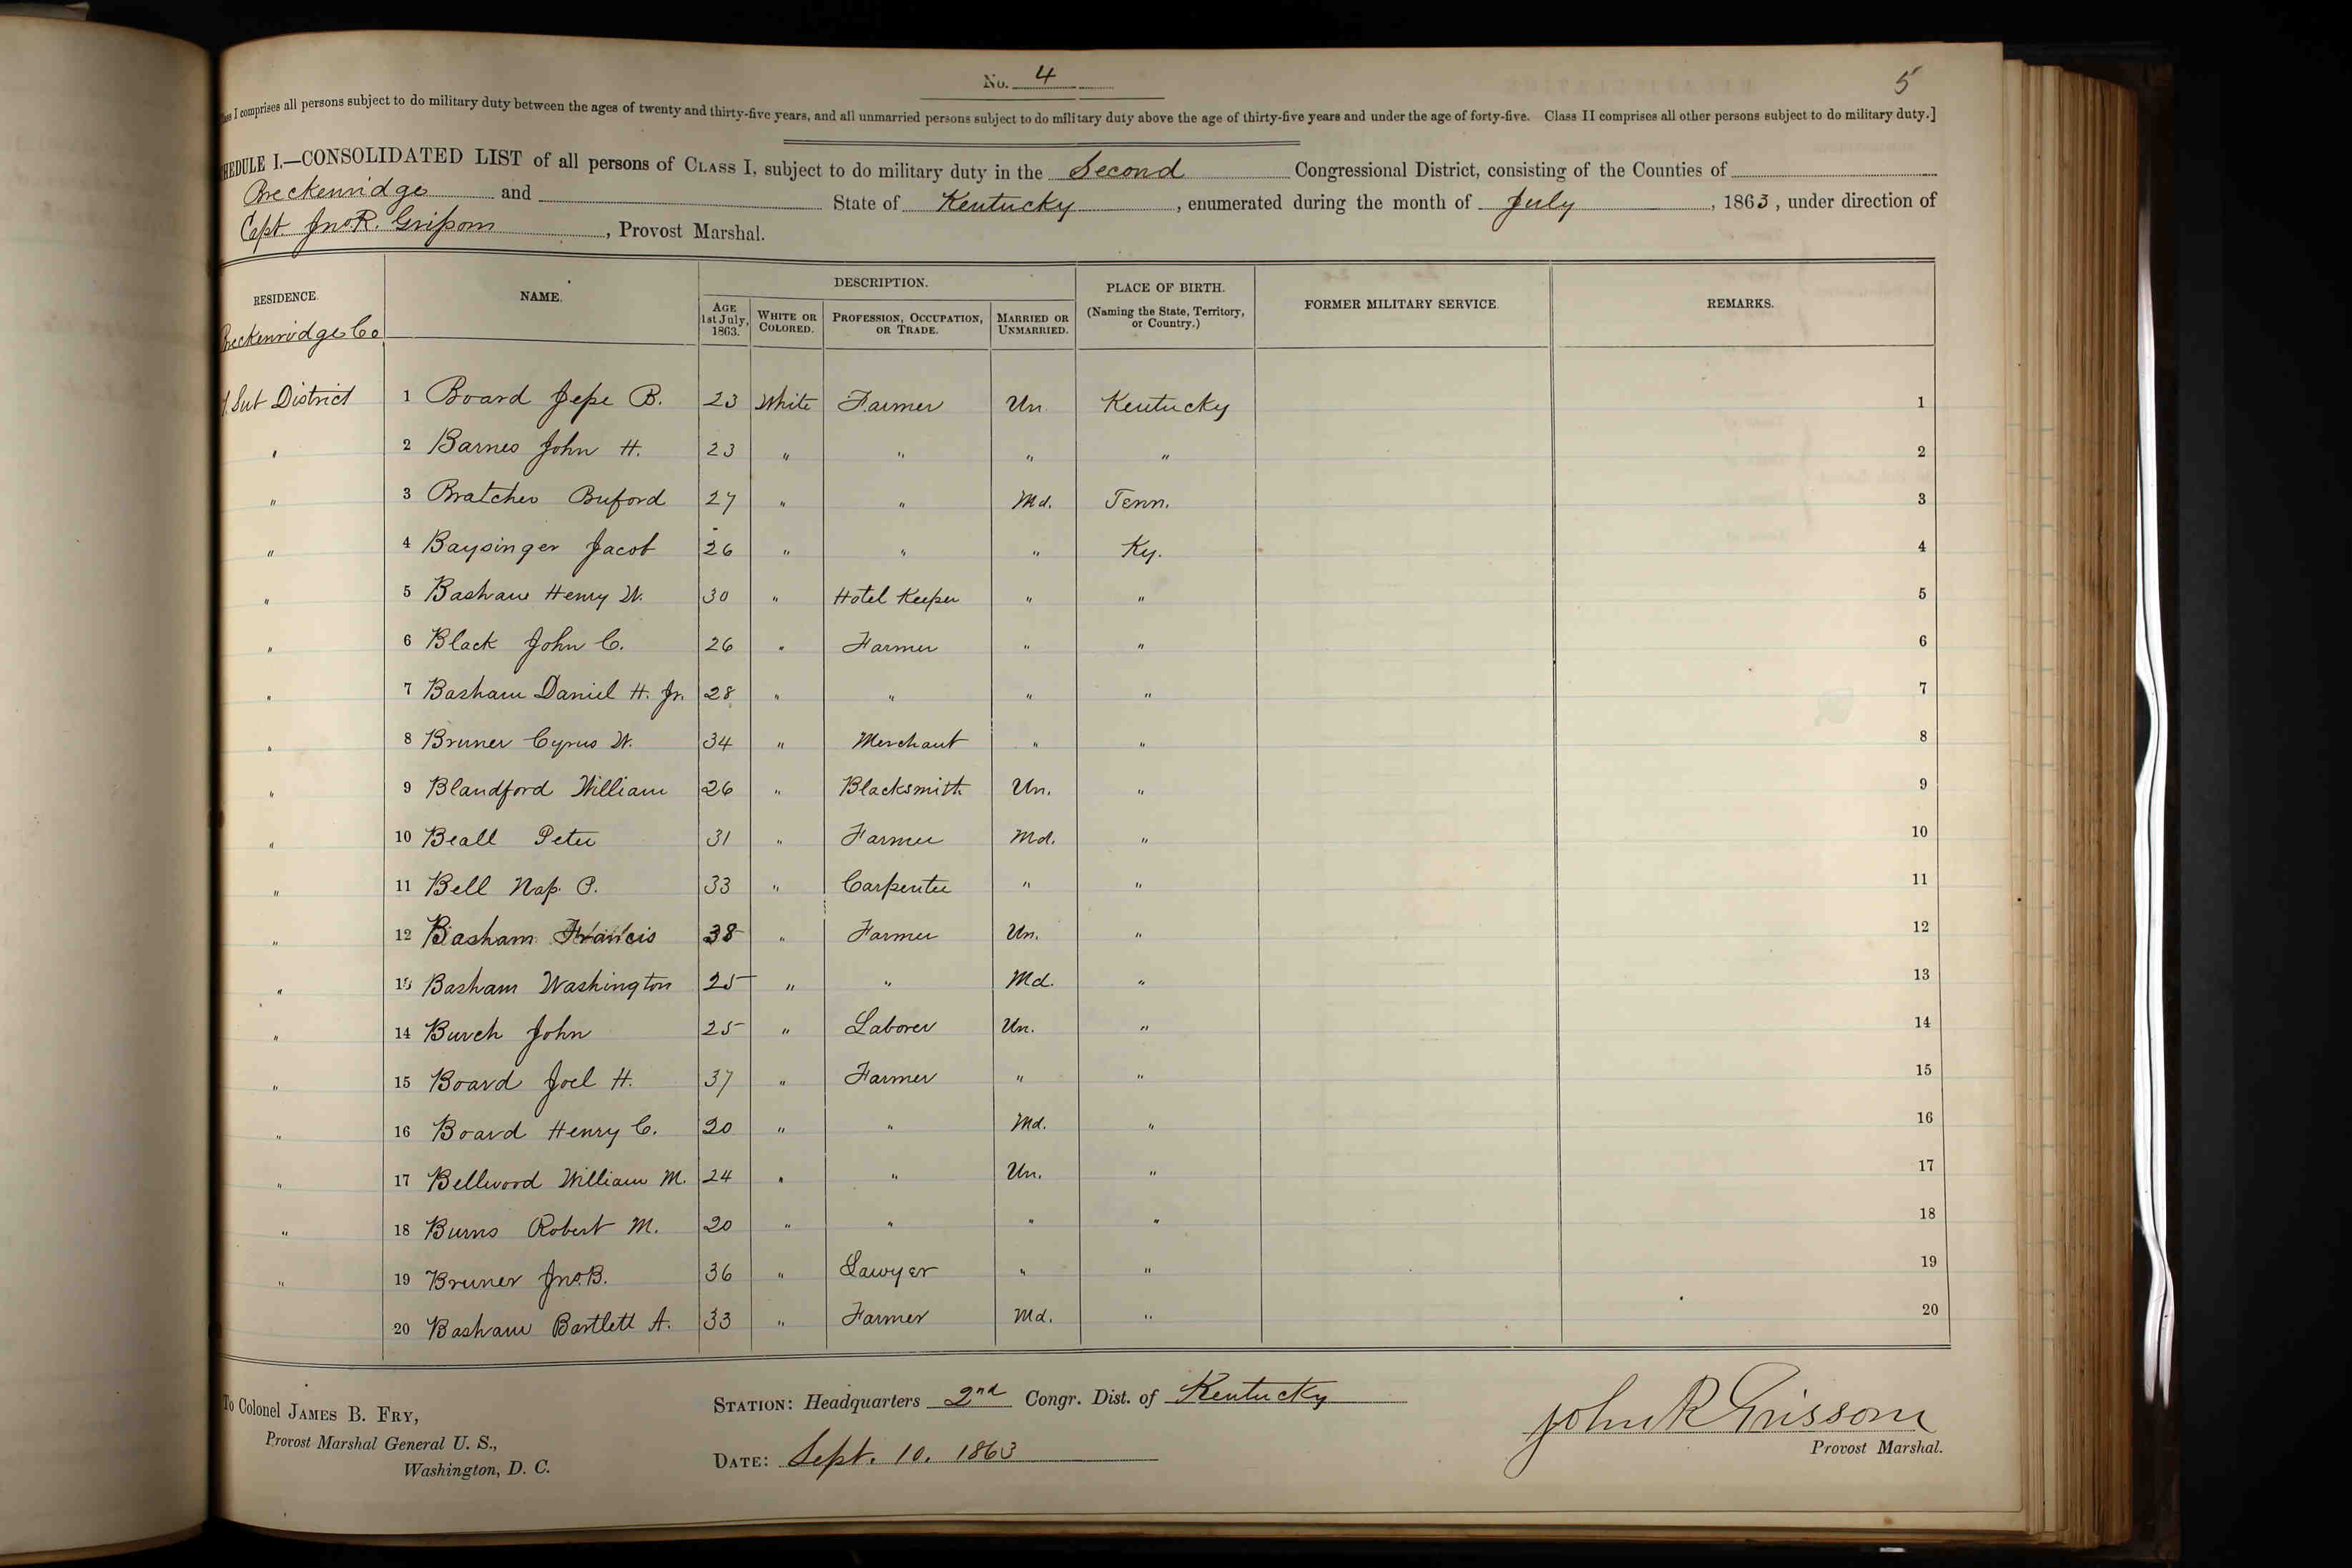 No. 4
5
I comprises all persons subject to do military duty between the ages of twenty and thirty-five years, and all unmarried persons subject to do military duty above the age of thirty-five years and under the age of forty-five. Class II comprises all other persons subject to do military duty.]
HEDULE I.—CONSOLIDATED LIST of all persons of CLASS I, subject to do military duty in the Second Congressional District, consisting of the Counties of
Breckenridge and State of Kentucky, enumerated during the month of July, 1863, under direction of
Capt. Jno. R. Grissom, Provost Marshal.
RESIDENCE. NAME. DESCRIPTION. PLACE OF BIRTH. (Naming the State, Territory, or Country.) FORMER MILITARY SERVICE. REMARKS.
AGE 1st July, 1863. WHITE OR COLORED. PROFESSION, OCCUPATION, OR TRADE. MARRIED OR UNMARRIED.
Breckenridge Co
1. Sub District 1 Board Jesse B. 23 White Farmer Un. Kentucky 1
" 2 Barnes John H. 23 " " " " 2
" 3 Bratcher Buford 27 " " Md. Tenn. 3
" 4 Baysinger Jacob 26 " " " Ky. 4
" 5 Basham Henry W. 30 " Hotel Keeper " " 5
" 6 Black John C. 26 " Farmer " " 6
" 7 Basham Daniel H. Jr. 28 " " " " 7
" 8 Bruner Cyrus W. 34 " Merchant " " 8
" 9 Blandford William 26 " Blacksmith Un. " 9
" 10 Beall Peter 31 " Farmer Md. " 10
" 11 Bell Nap. P. 33 " Carpenter " " 11
" 12 Basham Francis 38 " Farmer Un. " 12
" 13 Basham Washington 25 " " Md. " 13
" 14 Burch John 25 " Laborer Un. " 14
" 15 Board Joel H. 37 " Farmer " " 15
" 16 Board Henry C. 20 " " Md. " 16
" 17 Bellwood William M. 24 " " Un. " 17
" 18 Burns Robert M. 20 " " " " 18
" 19 Bruner Jno. B. 36 " Lawyer " " 19
20 Basham Bartlett A. 33 " Farmer Md. " 20
To Colonel JAMES B. FRY,
Provost Marshal General U. S.,
Washington, D. C.
STATION: Headquarters 2nd Congr. Dist. of Kentucky
DATE: Sept. 10. 1863
John R Grissom
Provost Marshal.